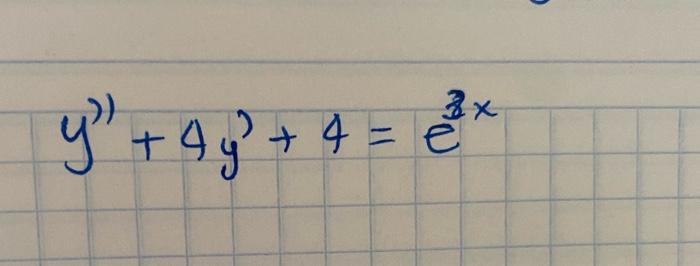 y'' + 4y' + 4 = e^{3x}